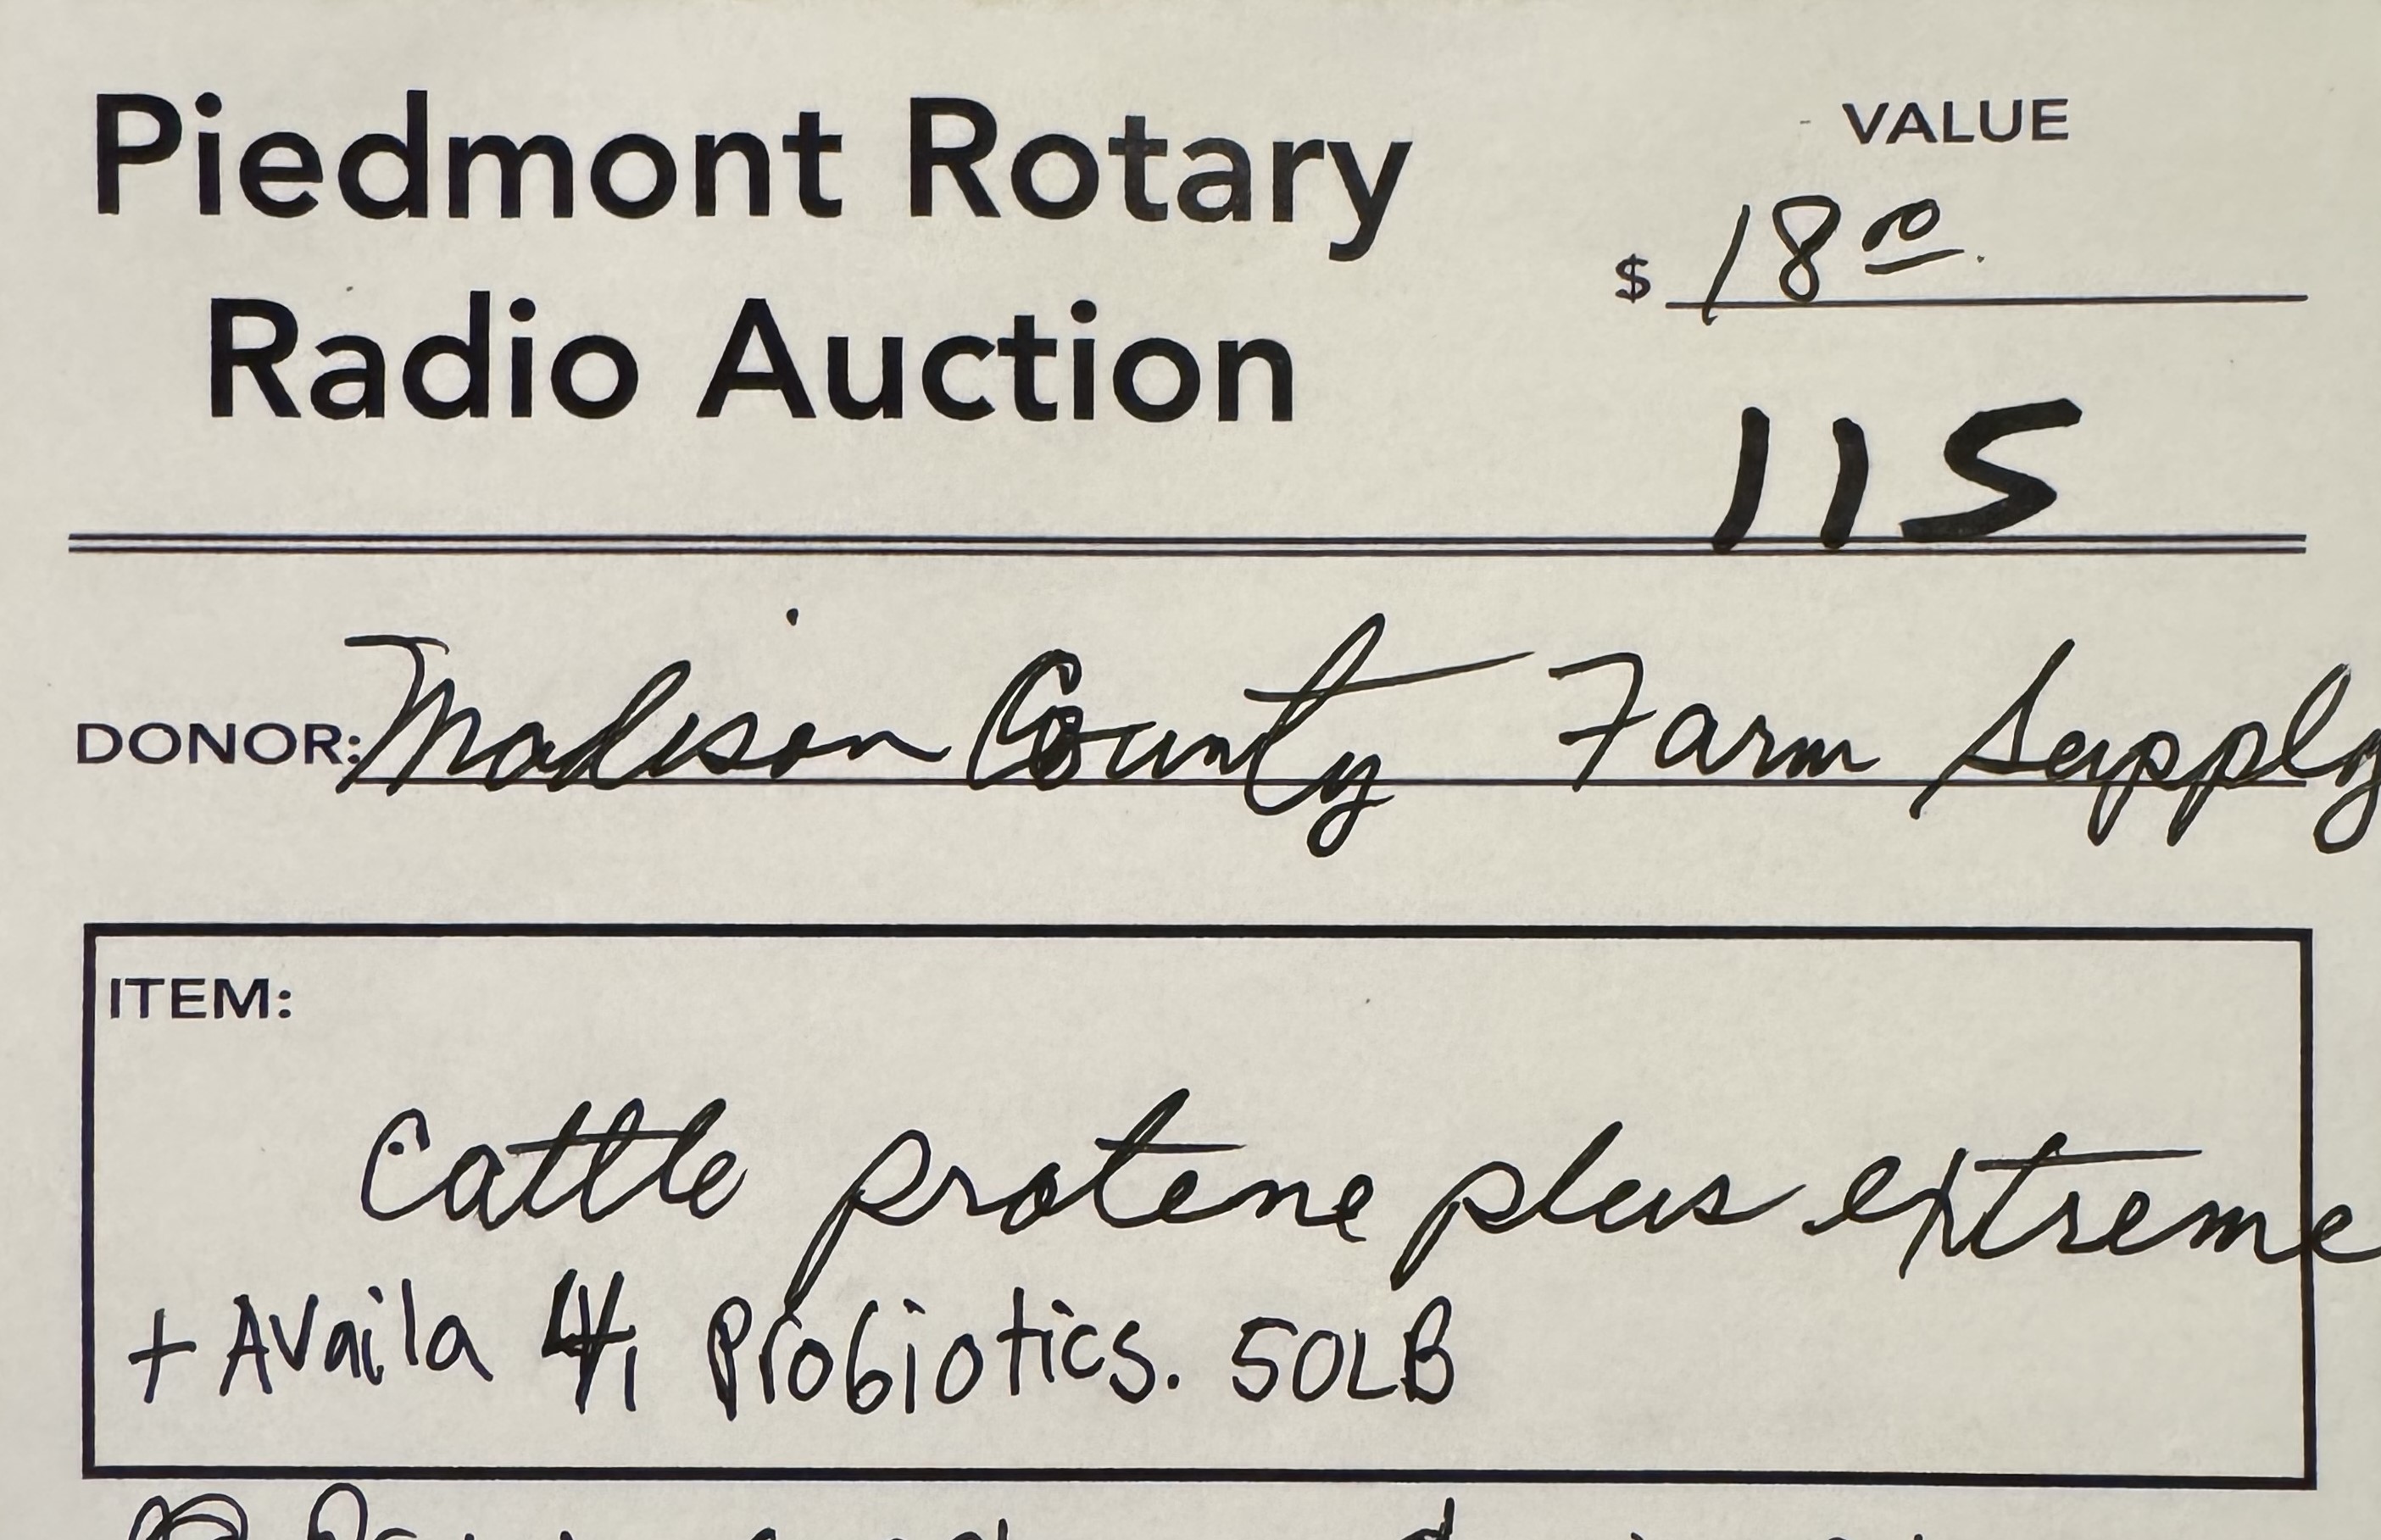 Piedmont Rotary
Radio Auction
VALUE
$ 18 00
115
DONOR: Madison County Farm Supply
ITEM:
Cattle protene plus extreme
+ Availa 4, Probiotics. 50LB